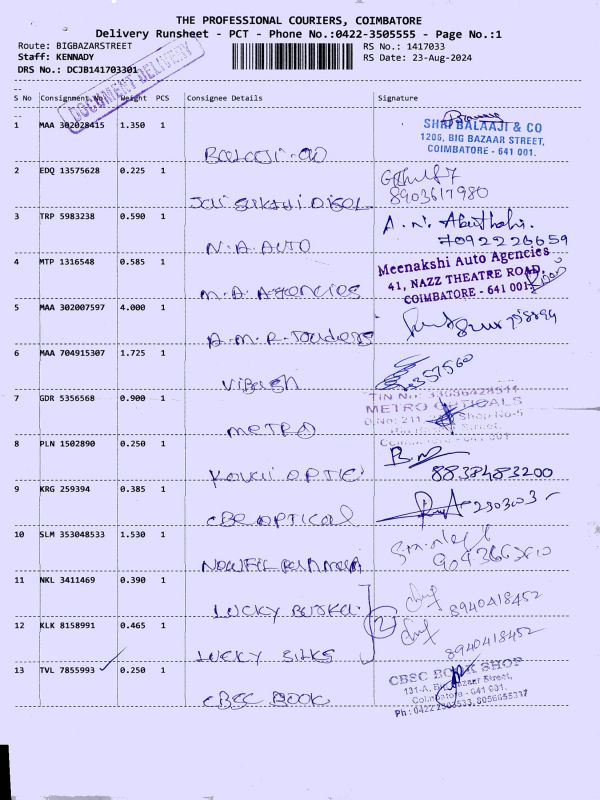 THE PROFESSIONAL COURIERS, COIMBATORE
Delivery Runsheet - PCT - Phone No.:0422-3505555 - Page No.:1
Route: BIGBAZARSTREET
RS No.: 1417033
Staff: KENNADY
RS Date: 23-Aug-2024
DRS No.: DCJB141703301
DOCUMENT DELIVERY
S No Consignment No Weight PCS Consignee Details Signature
1 MAA 302028415 1.350 1
SHRI BALAAJI & CO
1206, BIG BAZAAR STREET,
COIMBATORE - 641 001.
Balaaji-co
2 EDQ 13575628 0.225 1
8903617980
Jai Sakthi
3 TRP 5983238 0.590 1
A. N.
7092226659
N.A. AUTO
4 MTP 1316548 0.585 1
Meenakshi Auto Agencies
41, NAZZ THEATRE ROAD,
COIMBATORE - 641 001.
M.A. Agencies
5 MAA 302007597 4.000 1
A.M.R. Traders
6 MAA 704915307 1.725 1
357560
Vikash
7 GDR 5356568 0.900 1
METRO OPTICALS
Shop No-5
Street,
METRO
8 PLN 1502890 0.250 1
8838483200
OPTIC
9 KRG 259394 0.385 1
CBE OPTICAL
10 SLM 353048533 1.530 1
11 NKL 3411469 0.390 1
8940418452
LUCKY
12 KLK 8158991 0.465 1
2
8940418452
LUCKY SILKS
13 TVL 7855993 0.250 1
CBSC BOOK SHOP
131-A, Big Bazaar Street,
Coimbatore - 641 001.
CBSC BOOK